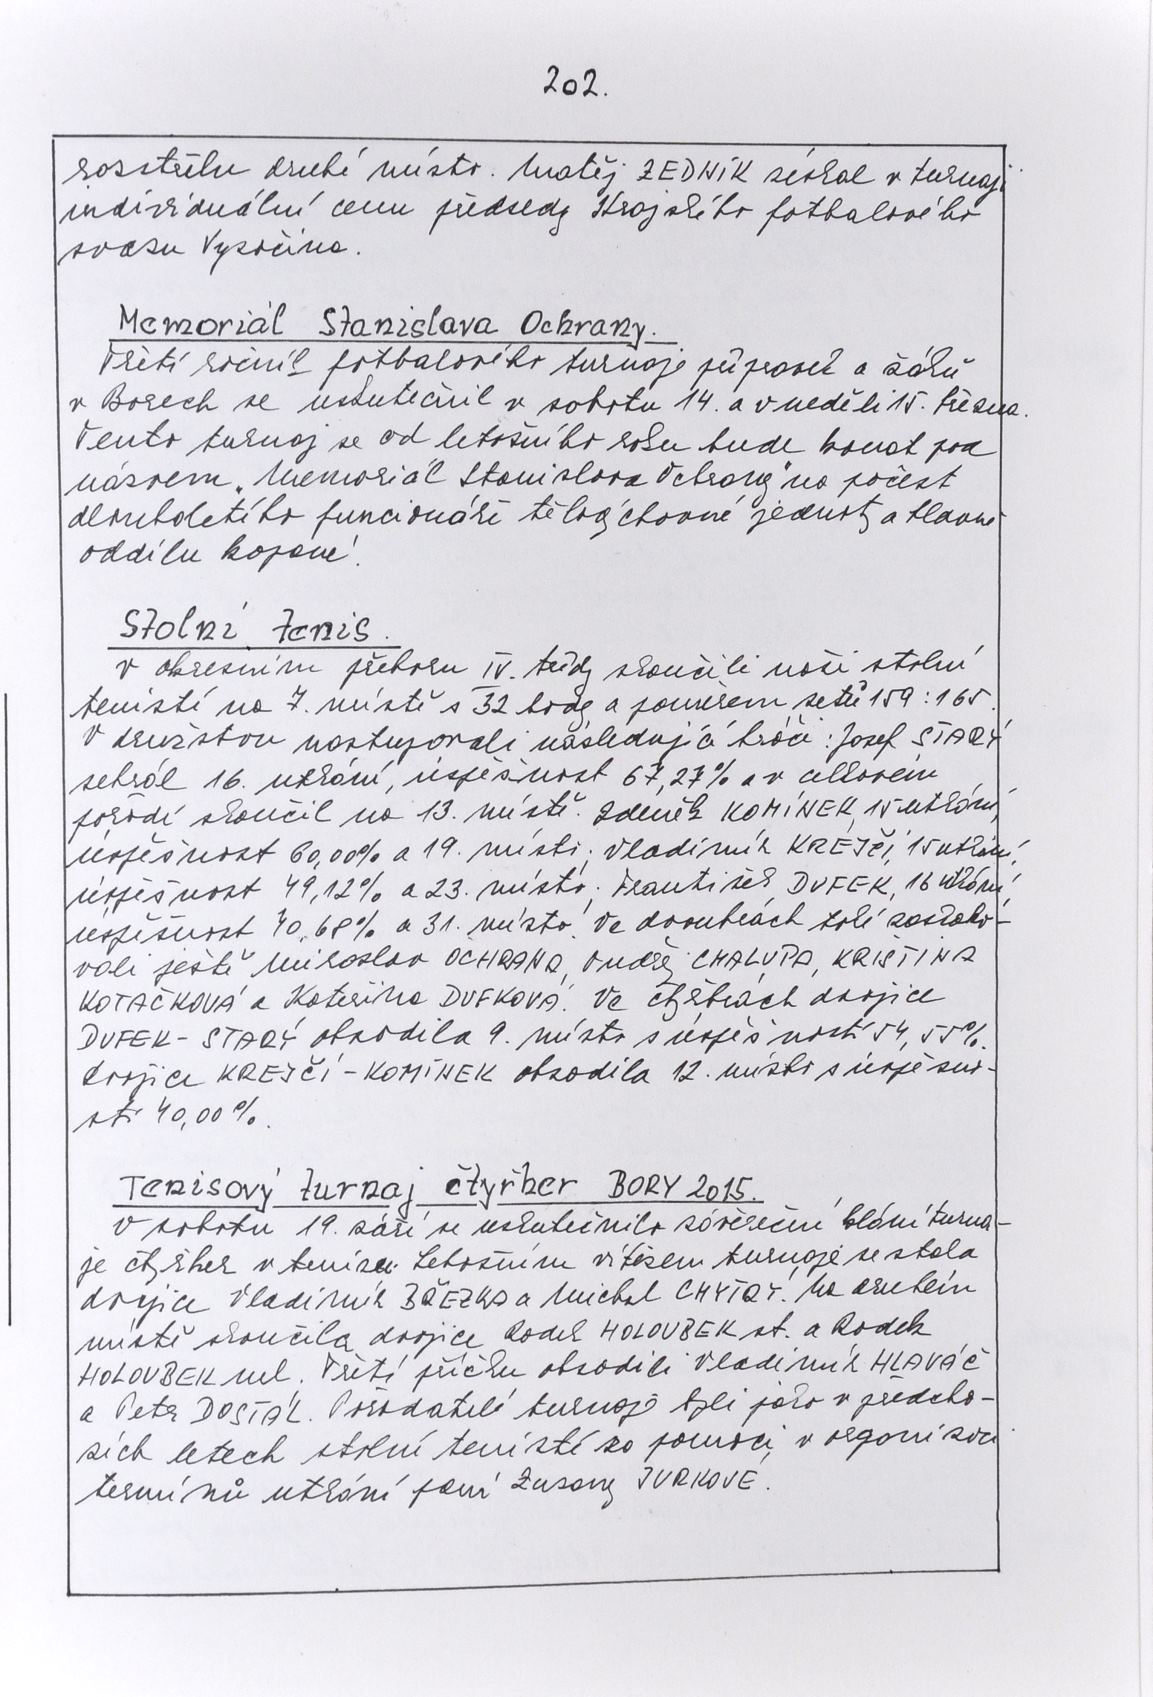 202.
rozstřelu druhé místo. Matěj ZEDNÍK získal v turnaji
individuální cenu předsedy Krajského fotbalového
svazu Vysočina.
Memoriál Stanislava Ochrany.
Třetí ročník fotbalového turnaje přípravek a žáků
v Borech se uskutečnil v sobotu 14. a v neděli 15. března.
Tento turnaj se od letošního roku bude konat pod
názvem „Memoriál Stanislava Ochrany" na počest
dlouholetého funcionáře tělovýchovné jednoty a hlavně
oddílu kopané.
Stolní tenis.
V okresním přeboru IV. třídy skončili naši stolní
tenisté na 7. místě s 32 body a poměrem setů 159:165.
V družstvu nastupovali následující hráči: Josef STARÝ
sehrál 16. utkání, úspěšnost 67,27% a v celkovém
pořadí skončil na 13. místě. Zdeněk KOMÍNEK, 15 utkání,
úspěšnost 60,00% a 19. místo, Vladimír KREJČÍ, 15 utkání,
úspěšnost 49,12% a 23. místo, František DUFEK, 16 utkání
úspěšnost 40,68% a 31. místo. Ve dvouhrách také zaskako-
vali ještě Miroslav OCHRANA, Ondřej CHALUPA, KRISTINA
KOTAČKOVÁ a Kateřina DUFKOVÁ. Ve čtyřhrách dvojice
DUFEK - STARÝ obsadila 9. místo s úspěšností 54,55%.
dvojice KREJČÍ - KOMÍNEK obsadila 12. místo s úspěšno-
stí 40,00%.
Tenisový turnaj čtyřher BORY 2015.
V sobotu 19. září se uskutečnilo závěrečné klání turna-
je čtyřher v tenisu. Letošním vítězem turnaje se stala
dvojice Vladimír BŘEZKA a Michal CHYTRÝ. Na druhém
místě skončila dvojice Radek HOLOUBEK st. a Radek
HOLOUBEK ml. Třetí příčku obsadili Vladimír HLAVÁČ
a Petr DOSTÁL. Pořadateli turnaje byli jako v předcho-
zích letech stolní tenisté za pomoci v organizaci
termínů utkání paní Zuzany JURKOVÉ.